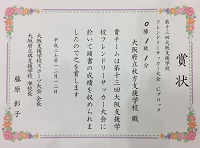 賞状
第十三回大阪支援学校
フレンドリーサッカー大会 Cブロック
0勝1敗1分
大阪府立枚方支援学校 殿
貴チームは第十三回大阪支援学
校フレンドリーサッカー大会に
於いて頭書の成績を収められま
したので之を賞します
平成二十
大阪支援学校スポーツ大会 会長
藤原 彰子